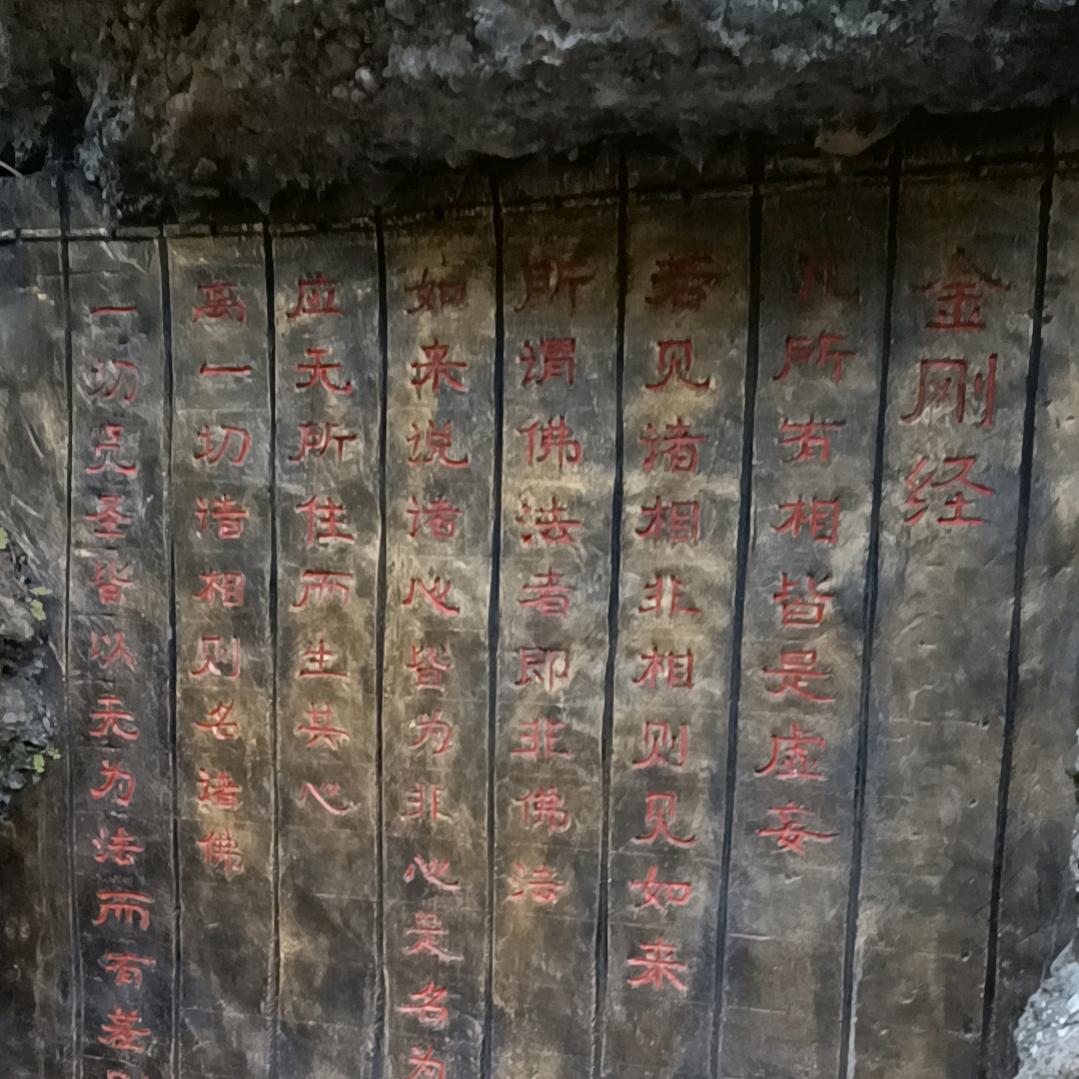 金刚经
凡所有相皆是虚妄
若见诸相非相则见如来
所谓佛法者即非佛法
如来说诸心皆为非心是名为
应无所住而生其心
离一切诸相则名诸佛
一切贤圣皆以无为法而有差